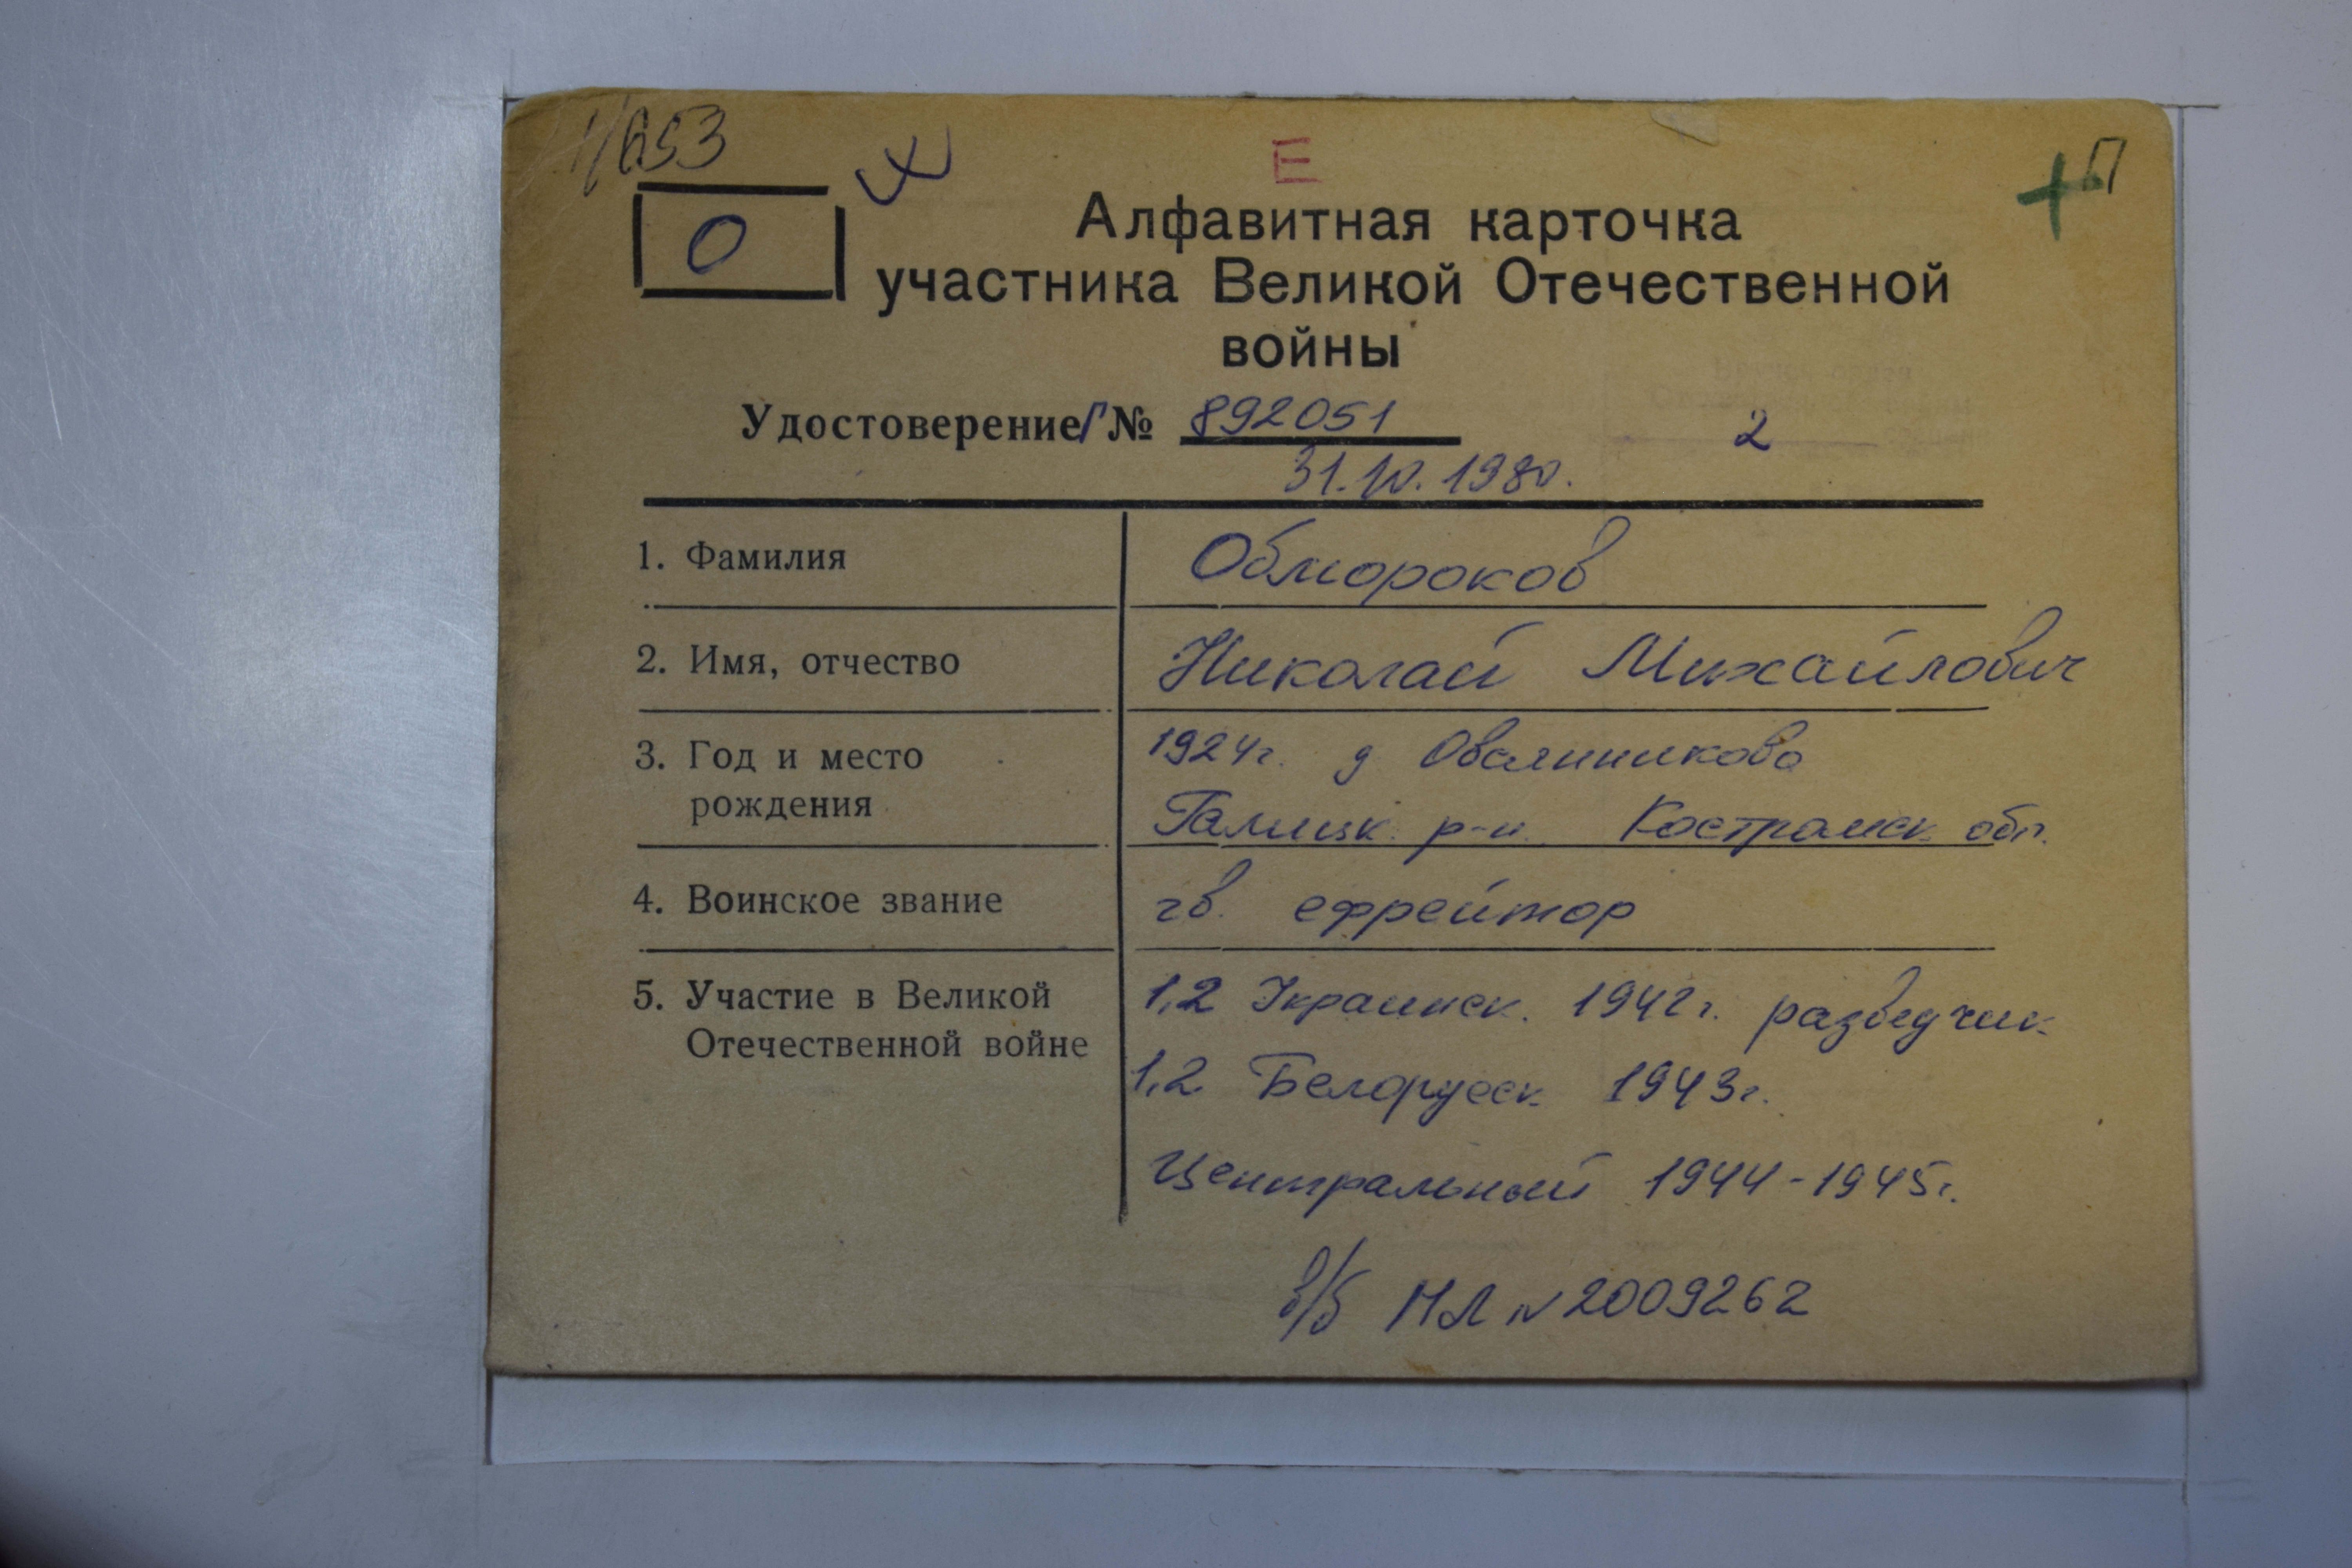 Е
П
О
Алфавитная карточка
участника Великой Отечественной
войны
Удостоверение Г № 892051
2
31.10.1980.
1. Фамилия Обмороков
2. Имя, отчество Николай Михайлович
3. Год и место 1924г. д Овсянниково
рождения Галицк. р-н. Костромск. обл.
4. Воинское звание гв. ефрейтор
5. Участие в Великой 1,2 Украинск. 1942г. разведчик
Отечественной войне
1,2 Белорусск. 1943г.
Центральный 1944-1945г.
в/б НЛ № 2009262